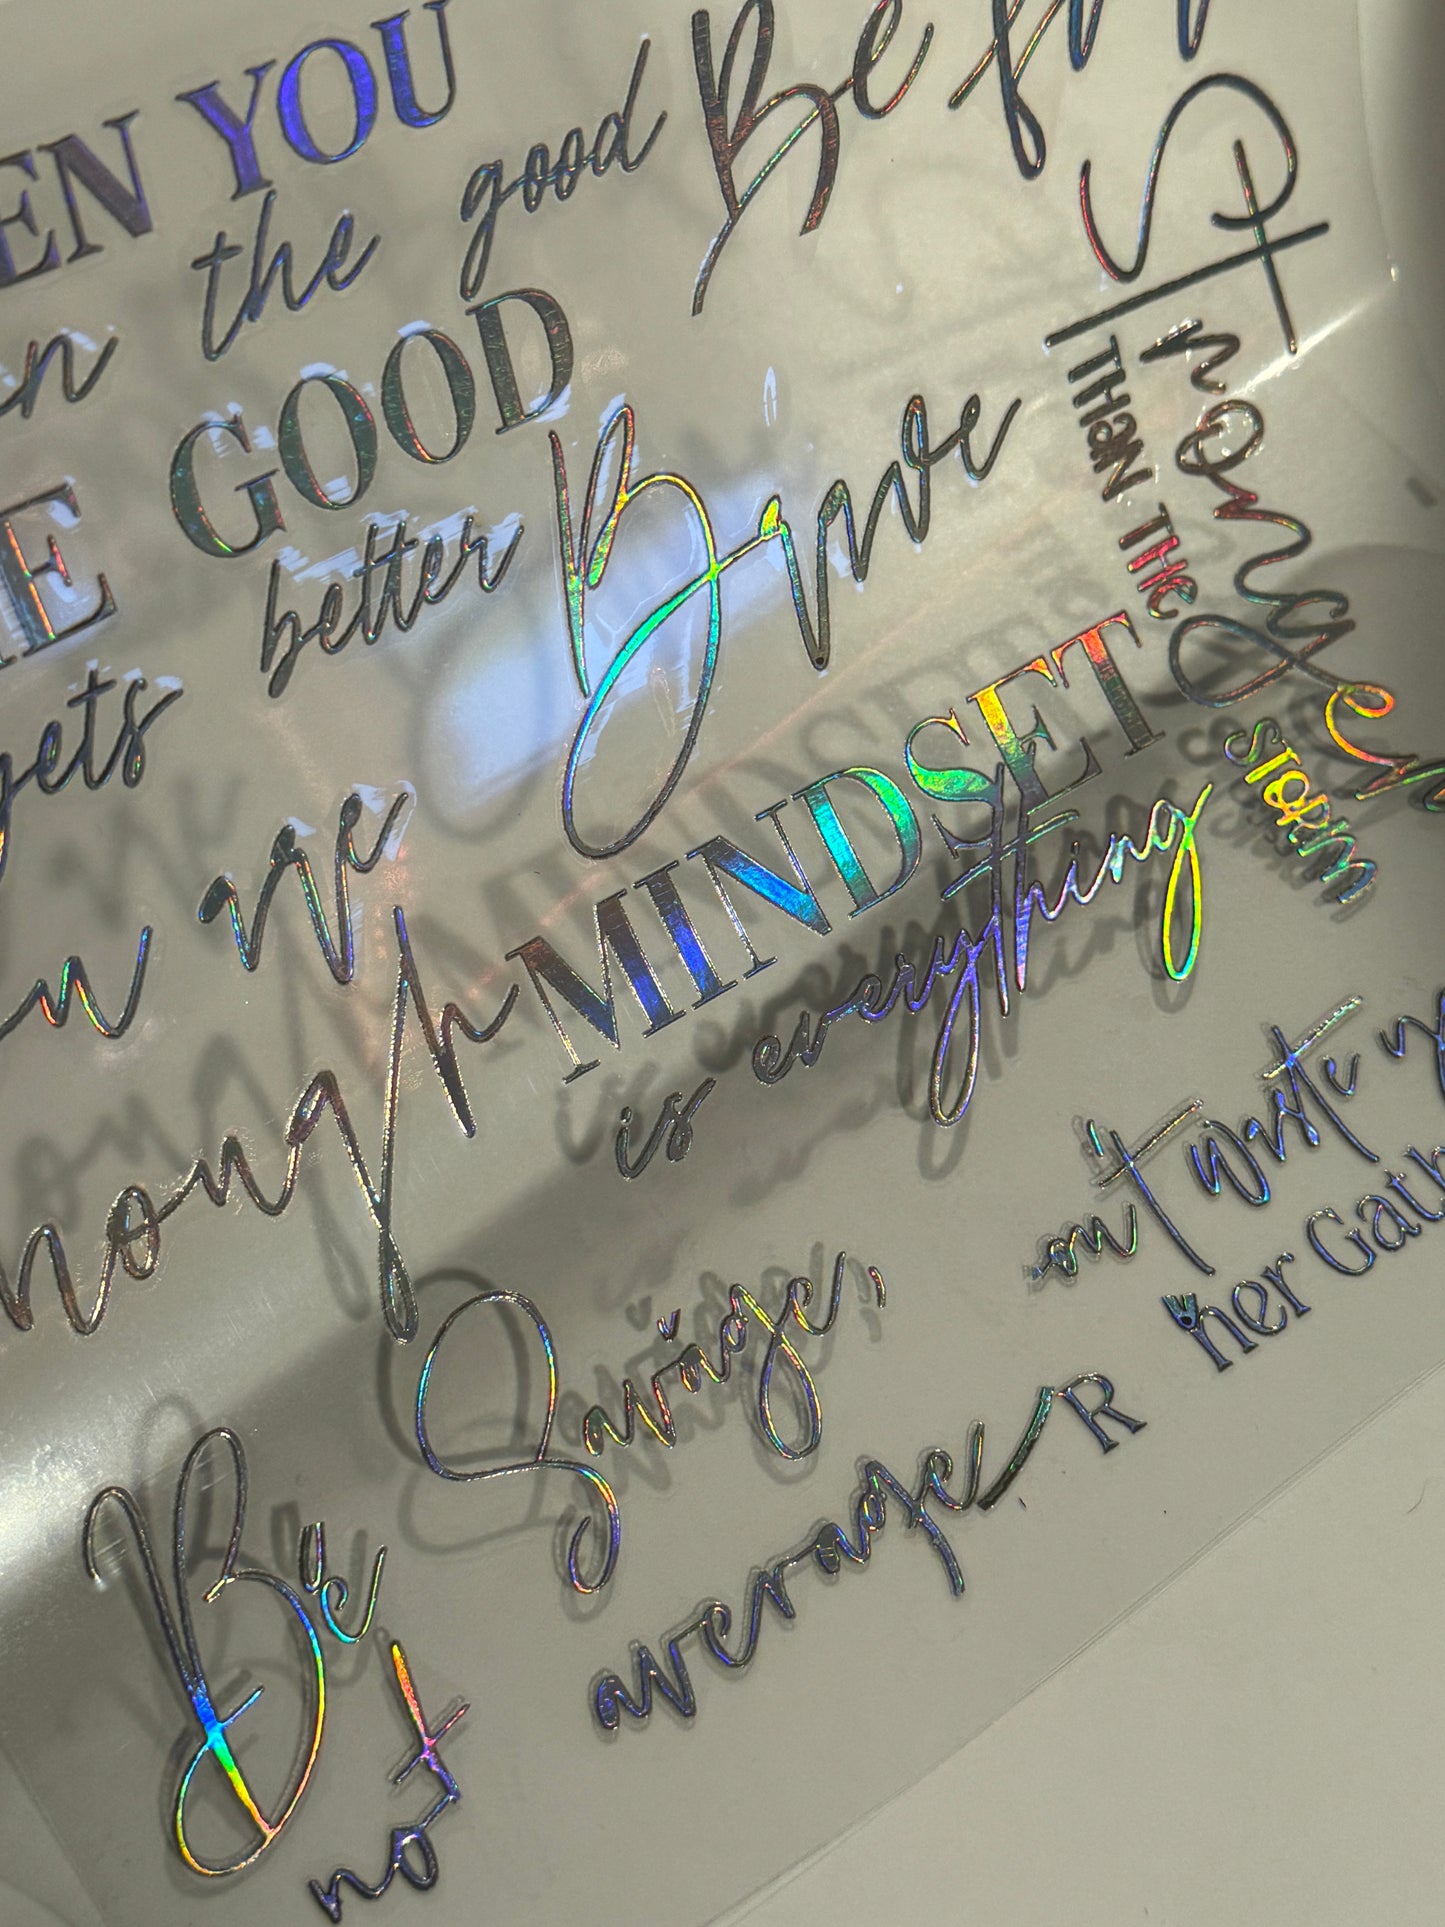 EN YOU
in the good
E GOOD
gets better
Be
Brave
are
Stronger
THAN THE
STORM
MINDSET
is everything
Be Savage,
not average
on't waste
her Gath
R